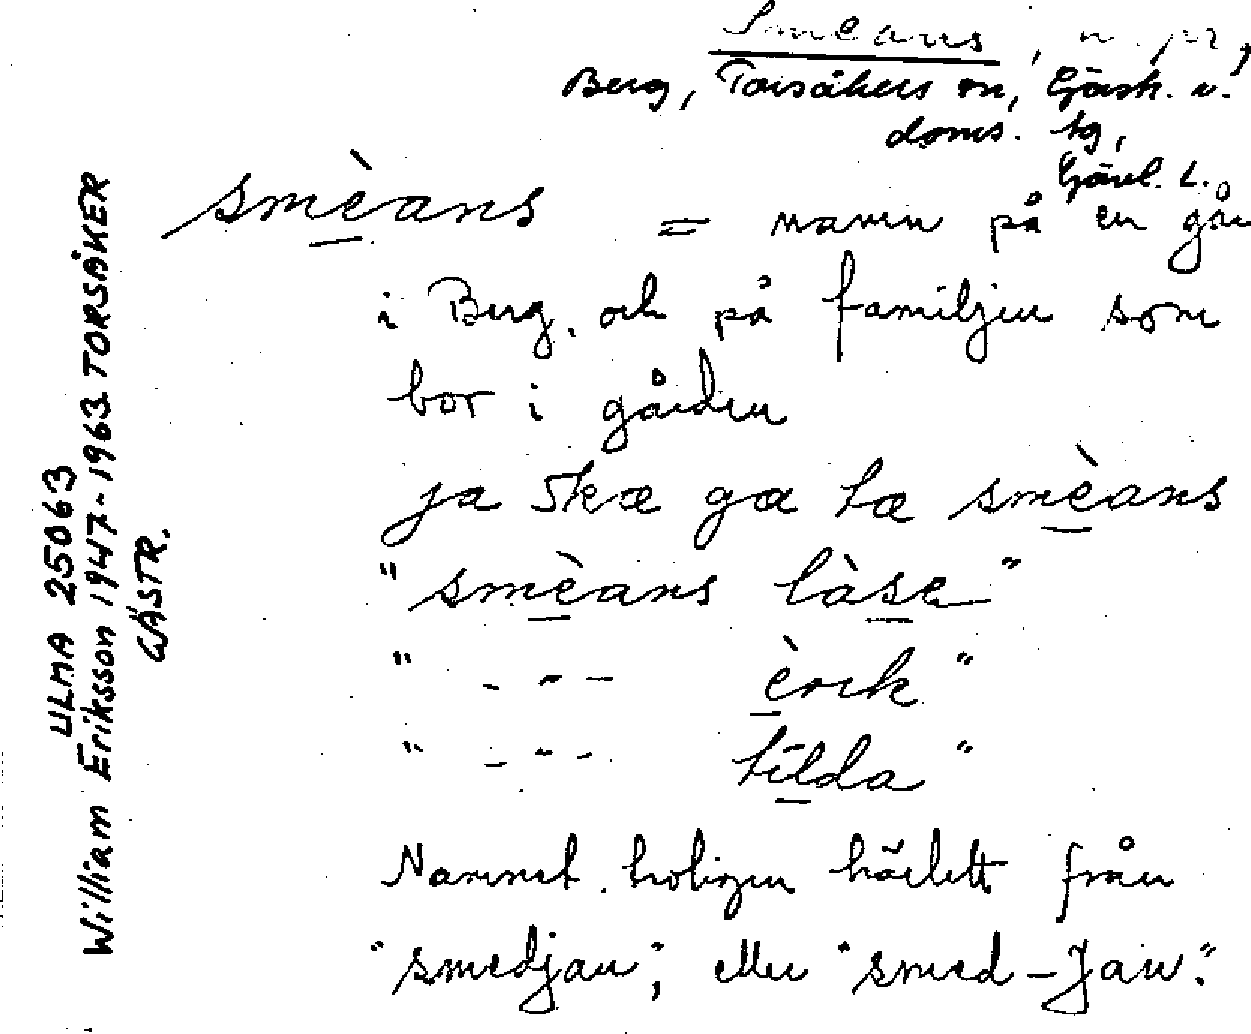 Smeans, n. pr,
Berg, Torsåkers sn, Gästr. v.
doms. tg,
Gävl. L.
smèans = namn på en går
i Berg, och på familjen som
bor i gården
ja ska ga ta smèans
"smèans làse"
" - " - èrik"
" - " - tilda"
Namnet troligen härlett från
"smedjan", eller "smed-Jan".
ULMA 25063
William Eriksson 1947-1963 TORSÅKER
GÄSTR.